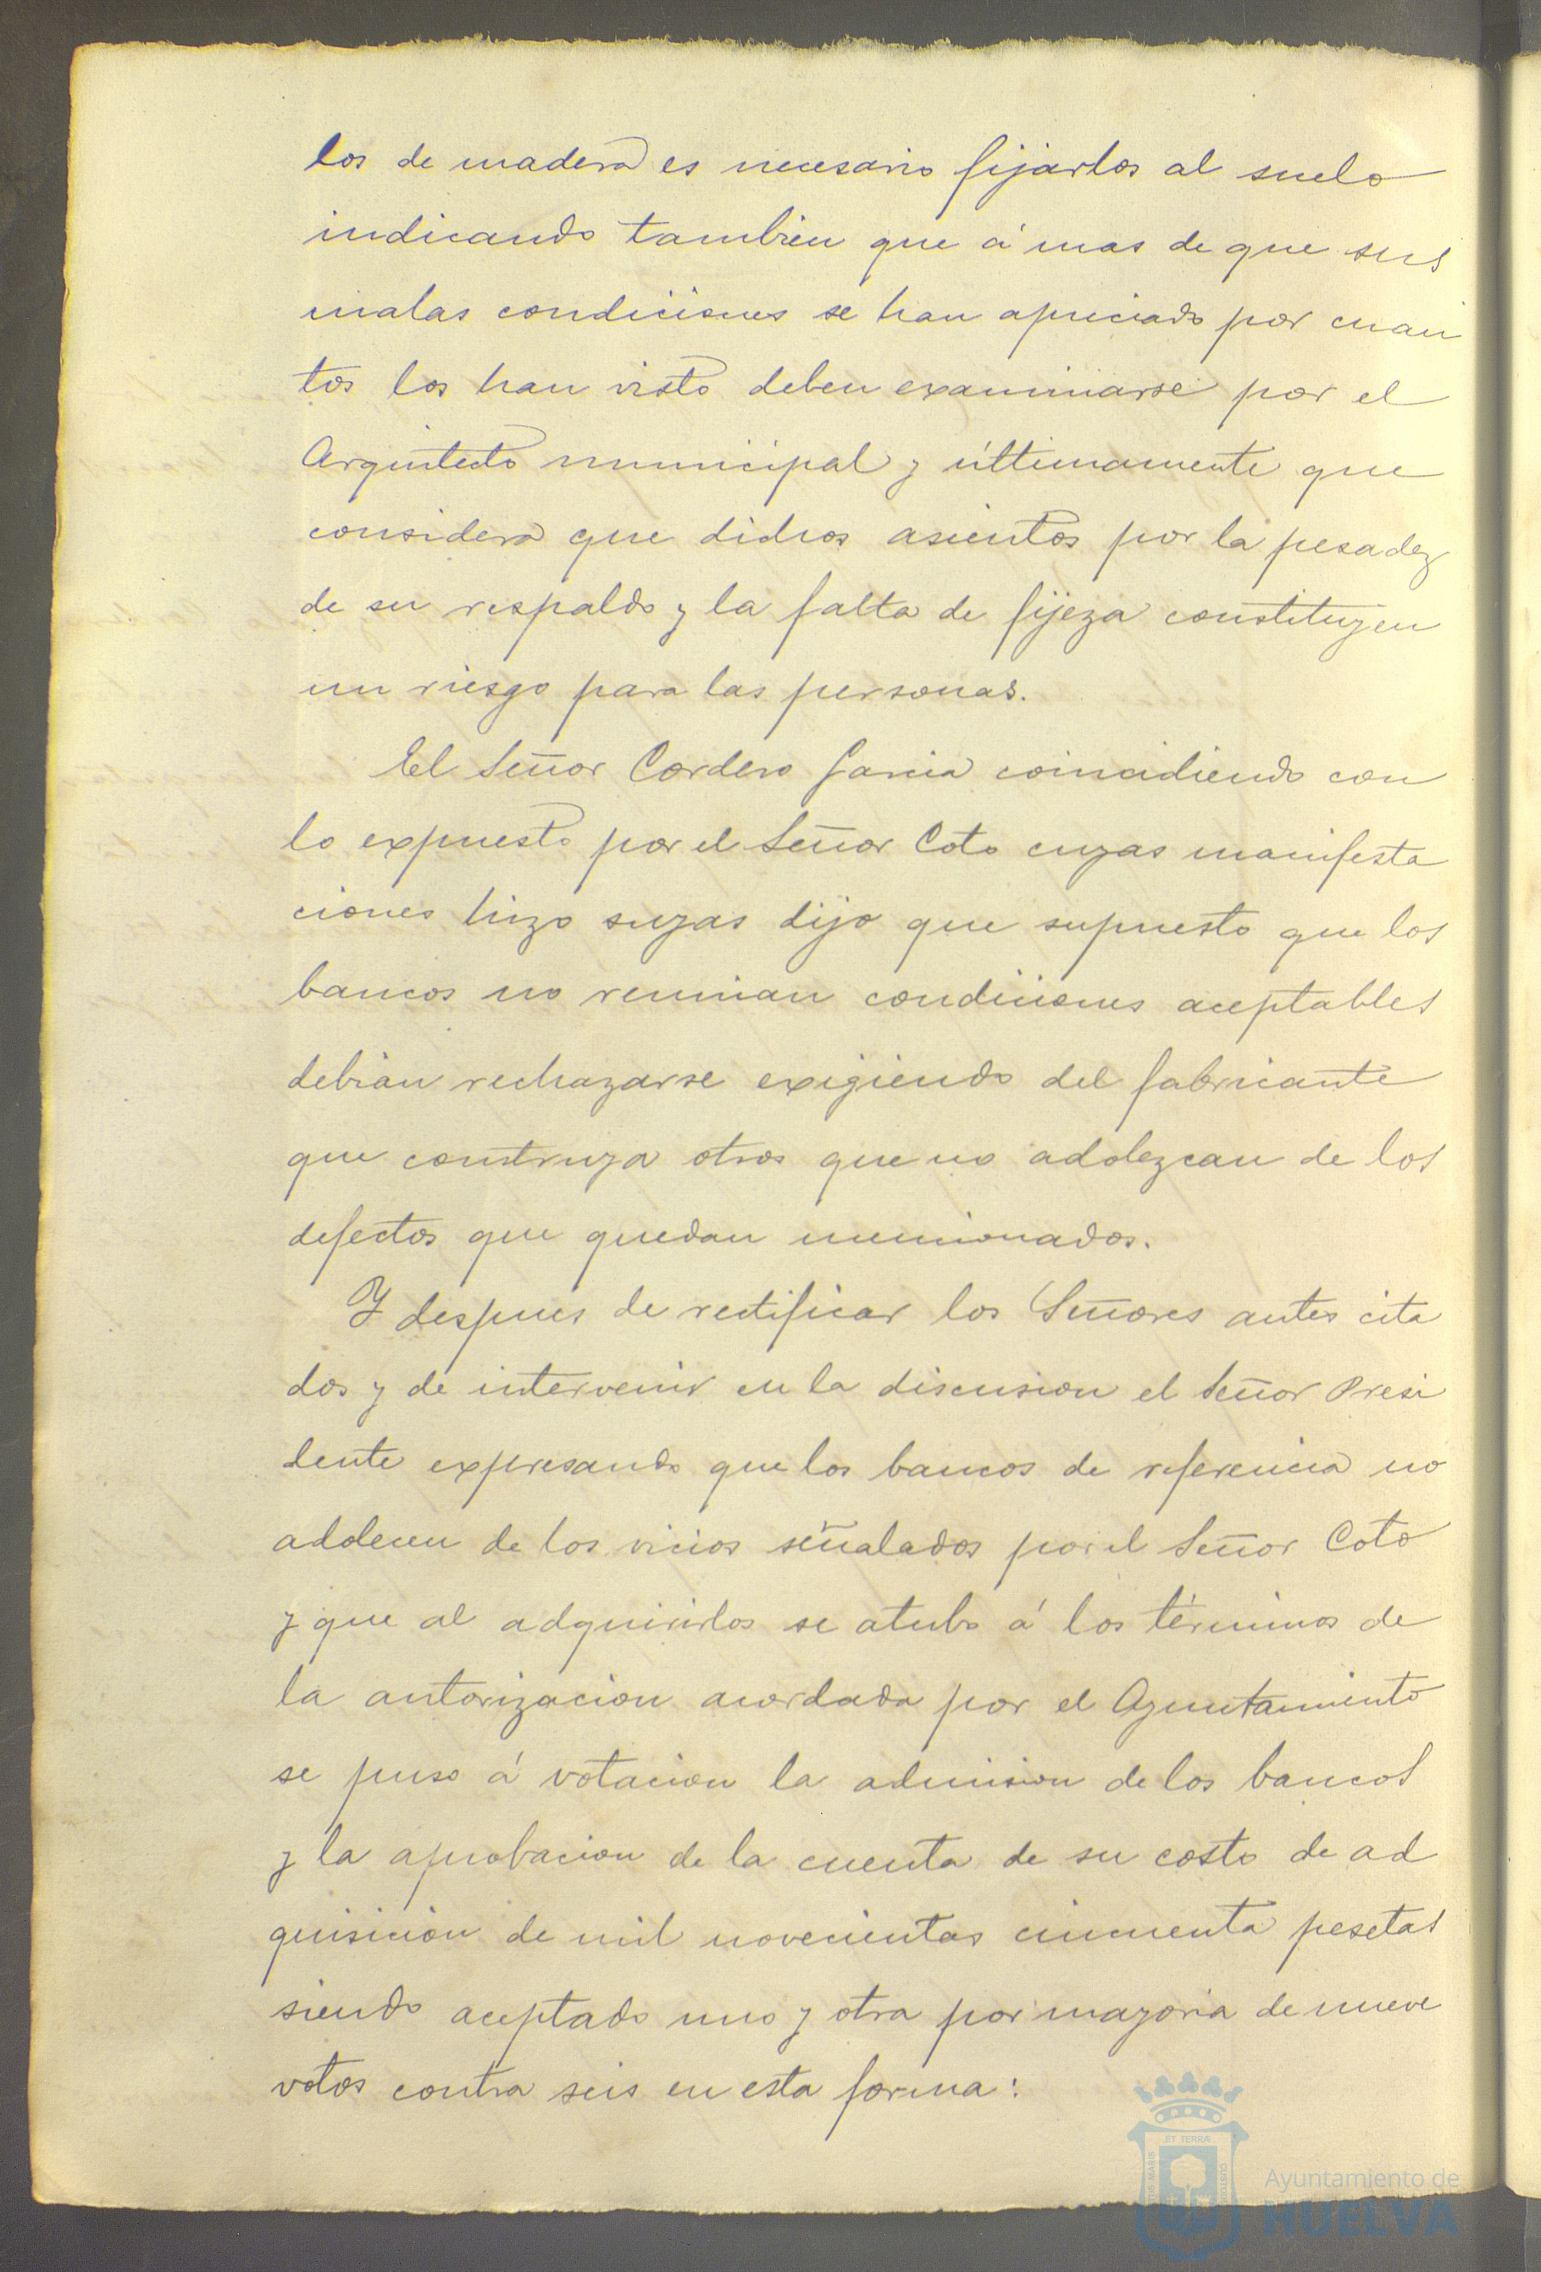 los de madera es necesario fijarlos al suelo
indicando tambien que á mas de que sus
malas condiciones se han apreciado por cuan
tos los han visto deben examinarse por el
Arquitecto municipal y últimamente que
considera que dichos asientos por la pesadez
de su respaldo y la falta de fijeza constituyen
un riesgo para las personas.
El Señor Cordero Garcia coincidiendo con
lo expuesto por el Señor Coto cuyas manifesta
ciones hizo suyas dijo que supuesto que los
bancos no reunian condiciones aceptables
debian rechazarse exigiendo del fabricante
que construya otros que no adolezcan de los
defectos que quedan mencionados.
Y despues de rectificar los Señores antes cita
dos y de intervenir en la discusion el Señor Presi
dente expresando que los bancos de referencia no
adolecen de los vicios señalados por el Señor Coto
y que al adquirirlos se atubo á los términos de
la autorizacion acordada por el Ayuntamiento
se puso á votacion la admision de los bancos
y la aprobacion de la cuenta de su costo de ad
quisicion de mil novecientas cincuenta pesetas
siendo aceptado uno y otra por mayoria de nueve
votos contra seis en esta forma:
ET TERRÆ
MARIS
CUSTODIA
Ayuntamiento de
HUELVA